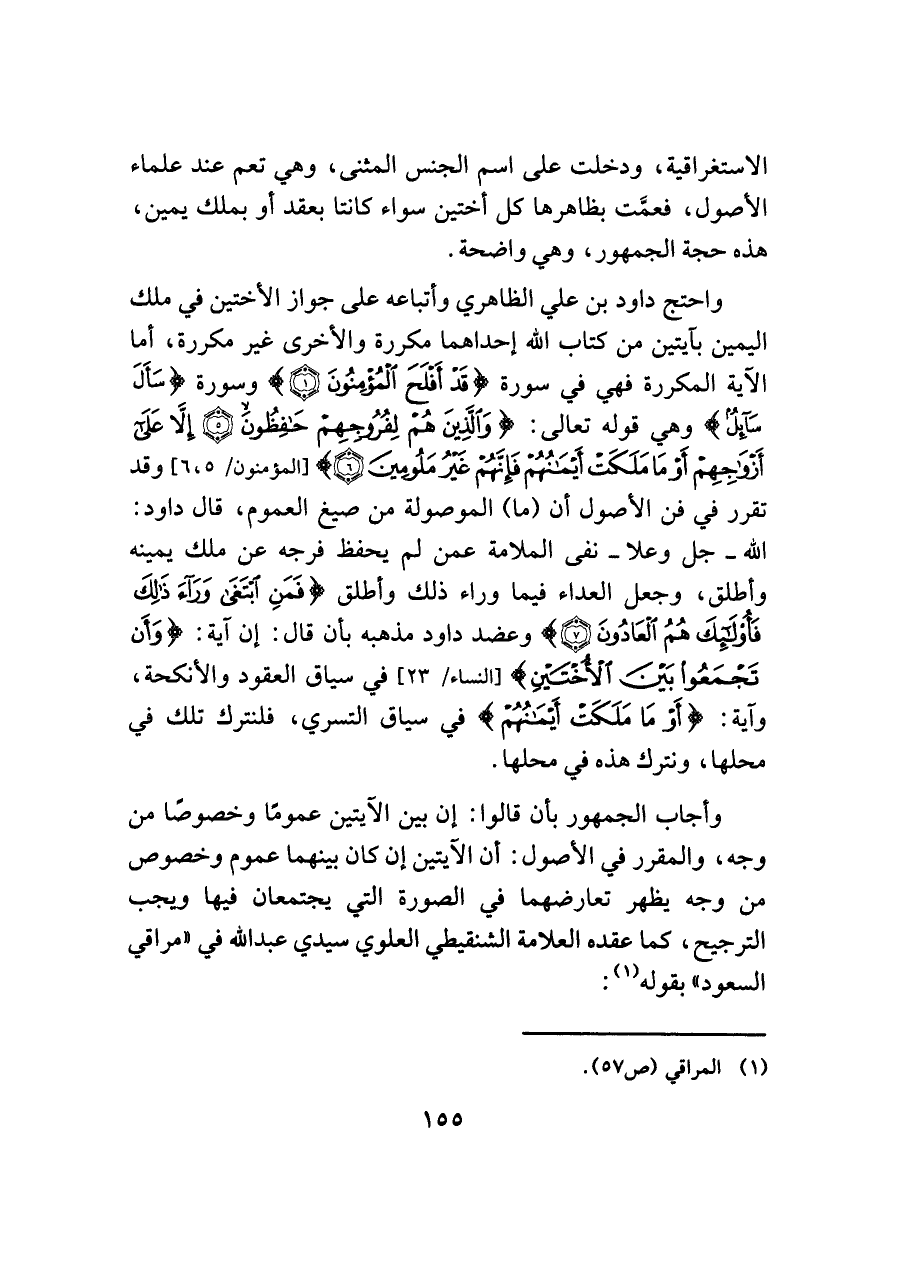 الاستغراقية، ودخلت على اسم الجنس المثنى، وهي تعم عند علماء
الأصول، فعمَّت بظاهرها كل أختين سواء كانتا بعقد أو بملك يمين،
هذه حجة الجمهور، وهي واضحة.
واحتج داود بن علي الظاهري وأتباعه على جواز الأختين في ملك
اليمين بآيتين من كتاب الله إحداهما مكررة والأخرى غير مكررة، أما
الآية المكررة فهي في سورة ﴿قَدْ أَفْلَحَ الْمُؤْمِنُونَ ۝١﴾ وسورة ﴿سَأَلَ
سَآئِلٌۢ﴾ وهي قوله تعالى: ﴿وَالَّذِينَ هُمْ لِفُرُوجِهِمْ حَٰفِظُونَ ۝٥ إِلَّا عَلَىٰٓ
أَزْوَٰجِهِمْ أَوْ مَا مَلَكَتْ أَيْمَٰنُهُمْ فَإِنَّهُمْ غَيْرُ مَلُومِينَ ۝٦﴾ [المؤمنون/ ٥،٦] وقد
تقرر في فن الأصول أن (ما) الموصولة من صيغ العموم، قال داود:
الله ـ جل وعلا ـ نفى الملامة عمن لم يحفظ فرجه عن ملك يمينه
وأطلق، وجعل العداء فيما وراء ذلك وأطلق ﴿فَمَنِ ٱبْتَغَىٰ وَرَآءَ ذَٰلِكَ
فَأُو۟لَٰٓئِكَ هُمُ ٱلْعَادُونَ ۝٧﴾ وعضد داود مذهبه بأن قال: إن آية: ﴿وَأَن
تَجْمَعُوا۟ بَيْنَ ٱلْأُخْتَيْنِ﴾ [النساء/ ٢٣] في سياق العقود والأنكحة،
وآية: ﴿أَوْ مَا مَلَكَتْ أَيْمَٰنُهُمْ﴾ في سياق التسري، فلنترك تلك في
محلها، ونترك هذه في محلها.
وأجاب الجمهور بأن قالوا: إن بين الآيتين عمومًا وخصوصًا من
وجه، والمقرر في الأصول: أن الآيتين إن كان بينهما عموم وخصوص
من وجه يظهر تعارضهما في الصورة التي يجتمعان فيها ويجب
الترجيح، كما عقده العلامة الشنقيطي العلوي سيدي عبدالله في «مراقي
السعود» بقوله(١):
(١) المراقي (ص٥٧).
١٥٥